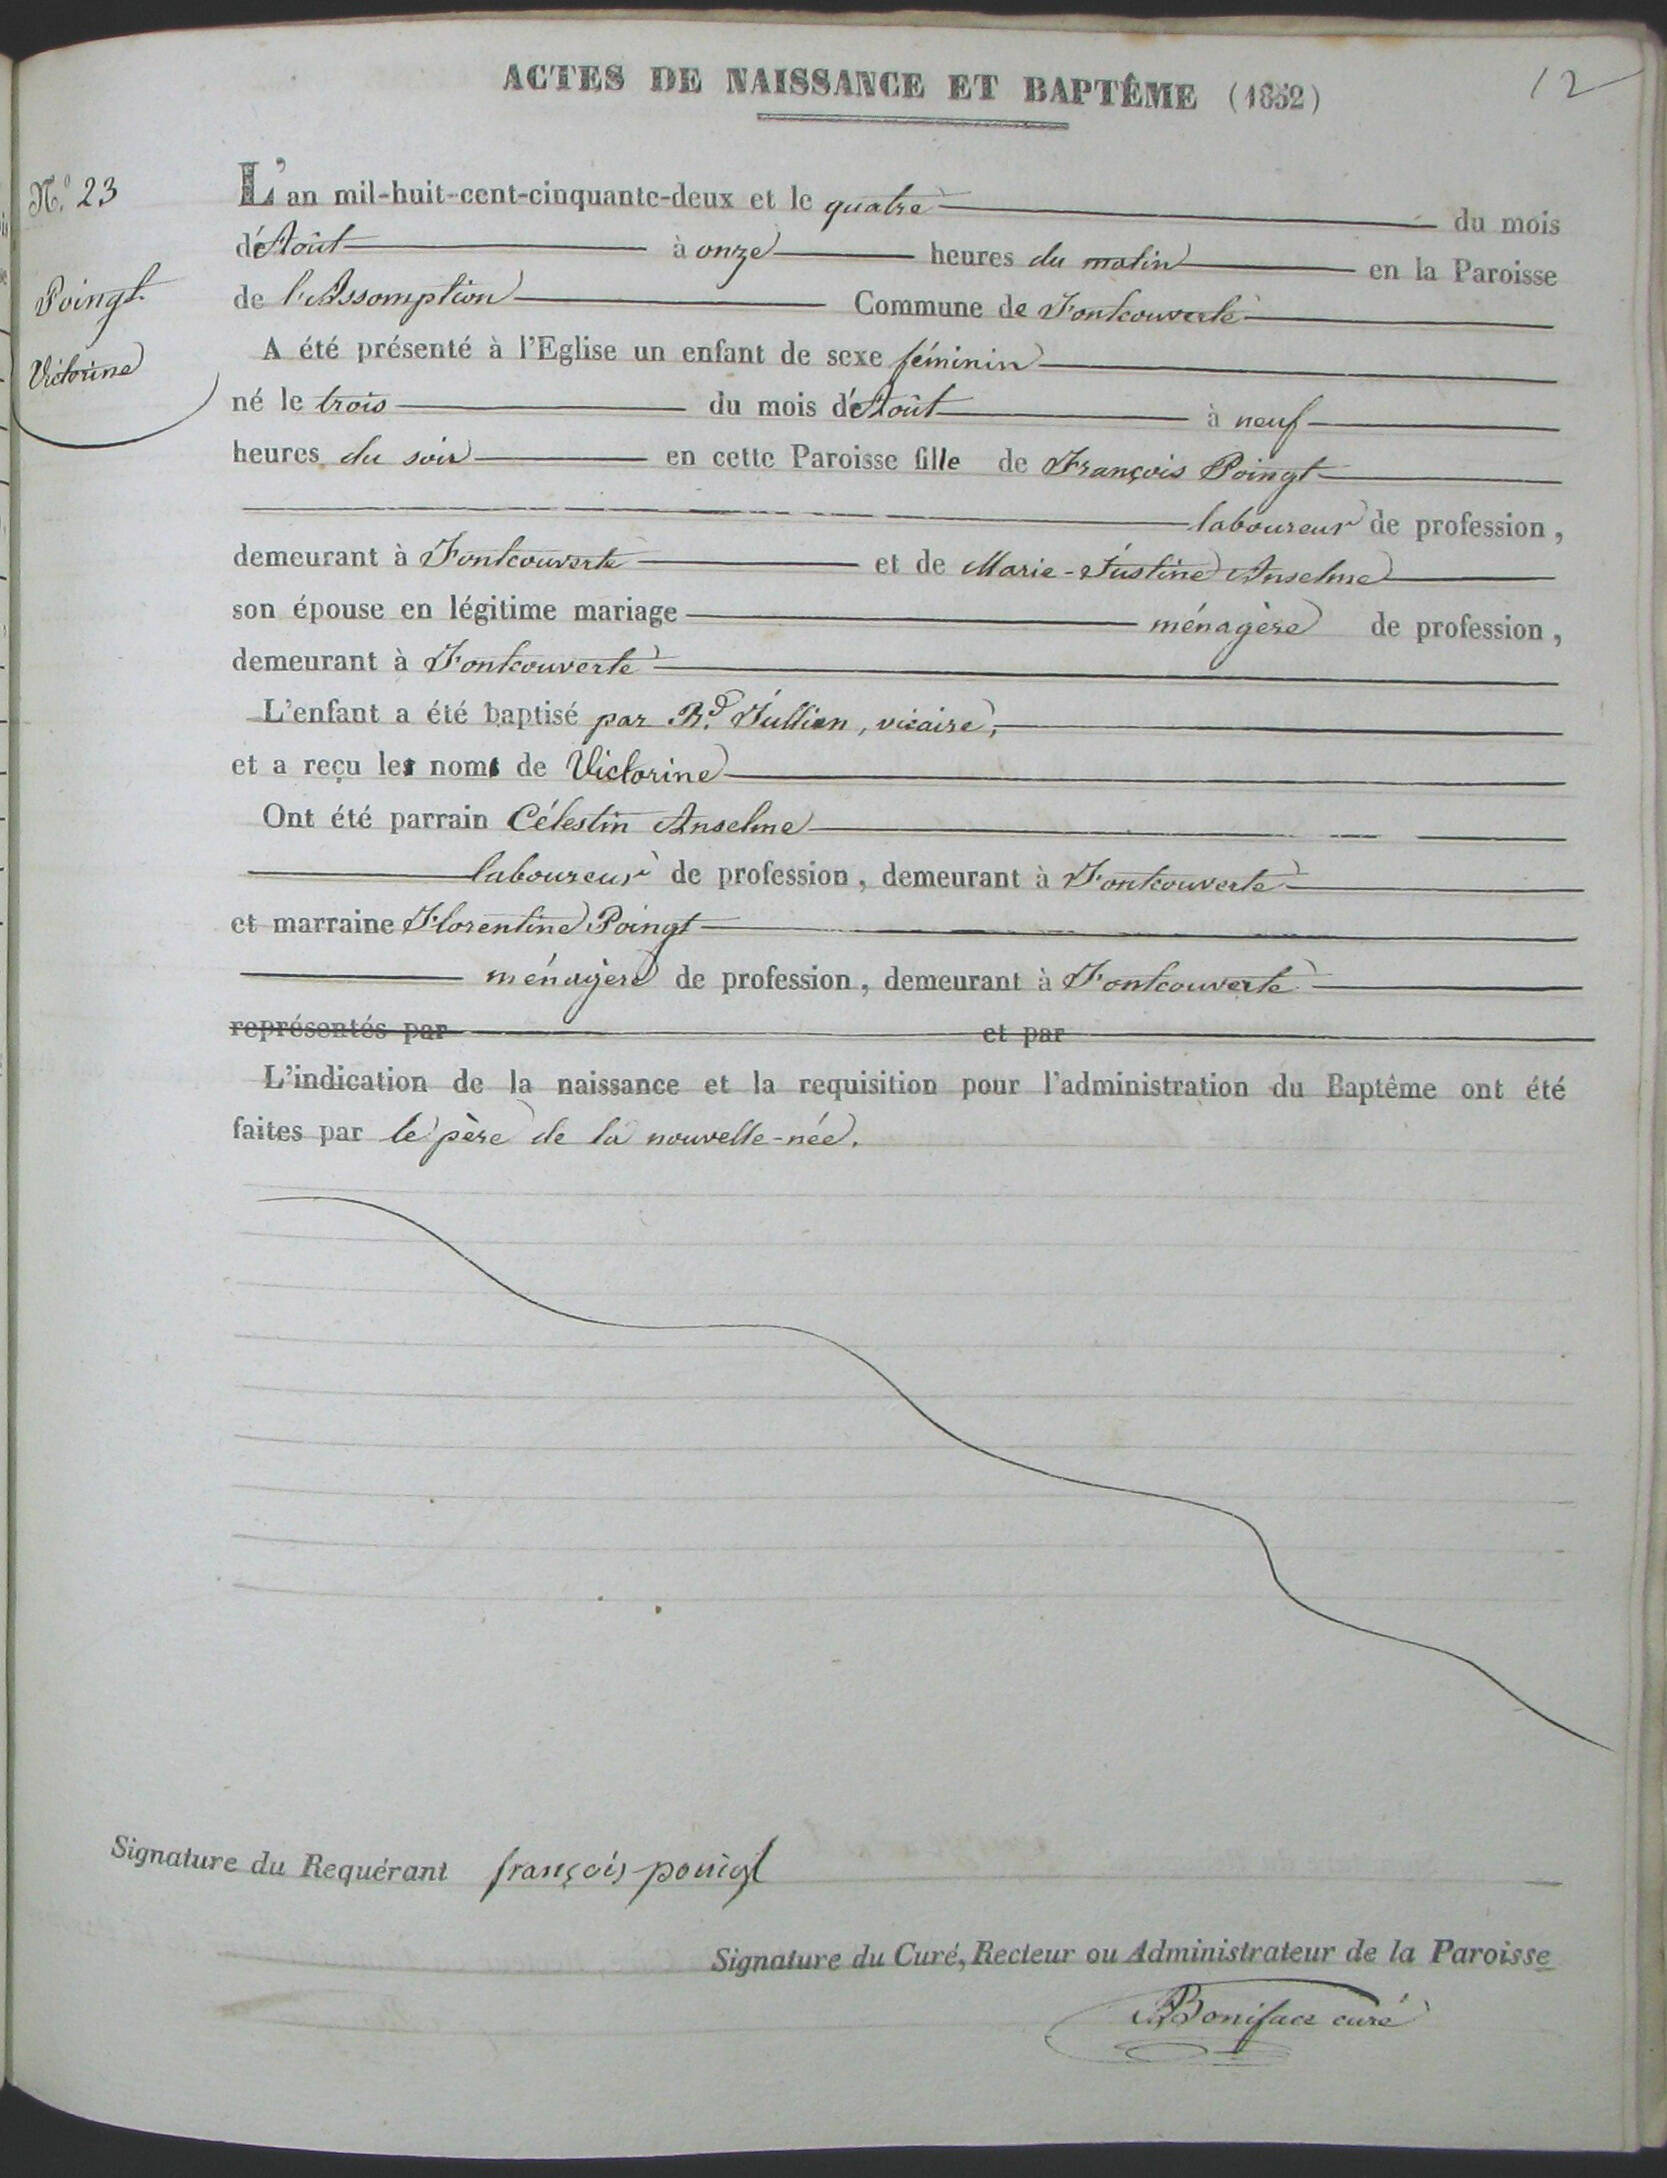 ACTES DE NAISSANCE ET BAPTÊME (1852)
12
N.o 23
Poingt
Victorine
L'an mil-huit-cent-cinquante-deux et le quatre du mois
d'Août à onze heures du matin en la Paroisse
de l'Assomption Commune de Fontcouverte
A été présenté à l'Eglise un enfant de sexe féminin
né le trois du mois d'Août à neuf
heures du soir en cette Paroisse fille de François Poingt
laboureur de profession,
demeurant à Fontcouverte et de Marie-Justine Anselme
son épouse en légitime mariage ménagère de profession,
demeurant à Fontcouverte
L'enfant a été baptisé par R.d Jullien, vicaire,
et a reçu les noms de Victorine
Ont été parrain Célestin Anselme
laboureur de profession, demeurant à Fontcouverte
et marraine Florentine Poingt
ménagère de profession, demeurant à Fontcouverte
représentés par et par
L'indication de la naissance et la requisition pour l'administration du Baptême ont été
faites par le père de la nouvelle-née.
Signature du Requérant françois poingt
Signature du Curé, Recteur ou Administrateur de la Paroisse
Boniface curé